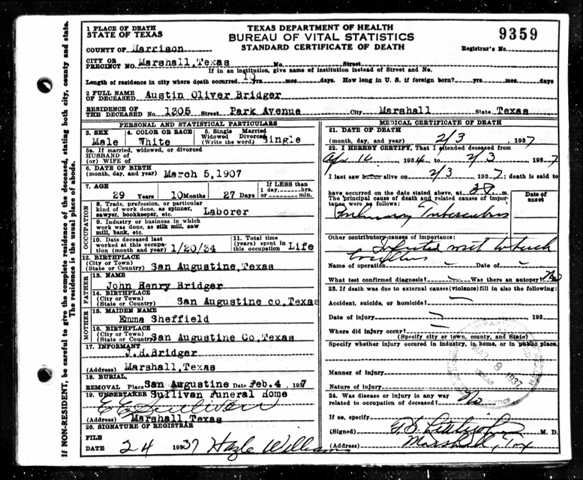 1 PLACE OF DEATH
STATE OF TEXAS
TEXAS DEPARTMENT OF HEALTH
BUREAU OF VITAL STATISTICS
STANDARD CERTIFICATE OF DEATH
9359
COUNTY OF Harrison
Registrar's No.
CITY OR PRECINCT NO. Marshall, Texas No. Street
If in an institution, give name of institution instead of Street and No.
Length of residence in city where death occurred yrs. mos. days. How long in U. S. if foreign born? yrs. mos. days
2 FULL NAME OF DECEASED Austin Oliver Bridger
RESIDENCE OF THE DECEASED NO. 1205 Street Park Avenue City Marshall State Texas
PERSONAL AND STATISTICAL PARTICULARS
3. SEX Male
4. COLOR OR RACE White
5. Single Married Widowed Divorced (Write the word) Single
5a. If married, widowed, or divorced
HUSBAND OF
(or) WIFE OF
6. DATE OF BIRTH
(month, day, and year) March 5, 1907
7. AGE 29 Years 10 Months 27 Days If LESS than 1 day, hrs. min.
OCCUPATION
8. Trade, profession, or particular kind of work done, as spinner, sawyer, bookkeeper, etc. Laborer
9. Industry or business in which work was done, as silk mill, saw mill, bank, etc.
10. Date deceased last worked at this occupation (month and year) 1/20/34
11. Total time (years) spent in this occupation Life
12. BIRTHPLACE
(City or Town)
(State or Country) San Augustine, Texas
FATHER
13. NAME John Henry Bridger
14. BIRTHPLACE
(City or Town)
(State or Country) San Augustine co, Texas
MOTHER
15. MAIDEN NAME Emma Sheffield
16. BIRTHPLACE
(City or Town)
(State or Country) San Augustine Co, Texas
17. INFORMANT J.H. Bridger
(Address) Marshall, Texas
18. BURIAL
REMOVAL Place San Augustine Date Feb. 4, 1937
19. UNDERTAKER Sullivan Funeral Home
E E Sullivan
(Address) Marshall Texas
20. SIGNATURE OF REGISTRAR
FILE DATE 2 4 1937 Hazle Williams
MEDICAL CERTIFICATE OF DEATH
21. DATE OF DEATH
(month, day, and year) 2/3, 1937
22. I HEREBY CERTIFY, That I attended deceased from
1934, to 2/3 1937
I last saw alive on 2/3 1937; death is said to
have occurred on the date stated above, at m.
The principal cause of death and related causes of importance were as follows:
Date of onset
Pulmonary Tuberculosis
Other contributory causes of importance:
Name of operation Date of
What test confirmed diagnosis? Was there an autopsy? No
23. If death was due to external causes (violence) fill in also the following:
Accident, suicide, or homicide?
Date of injury 19
Where did injury occur?
(Specify city or town, county, and State)
Specify whether injury occurred in industry, in home, or in public place.
Manner of injury
Nature of injury
24. Was disease or injury in any way related to occupation of deceased? No
If so, specify
(Signed) M. D.
(Address) Marshall, Tex